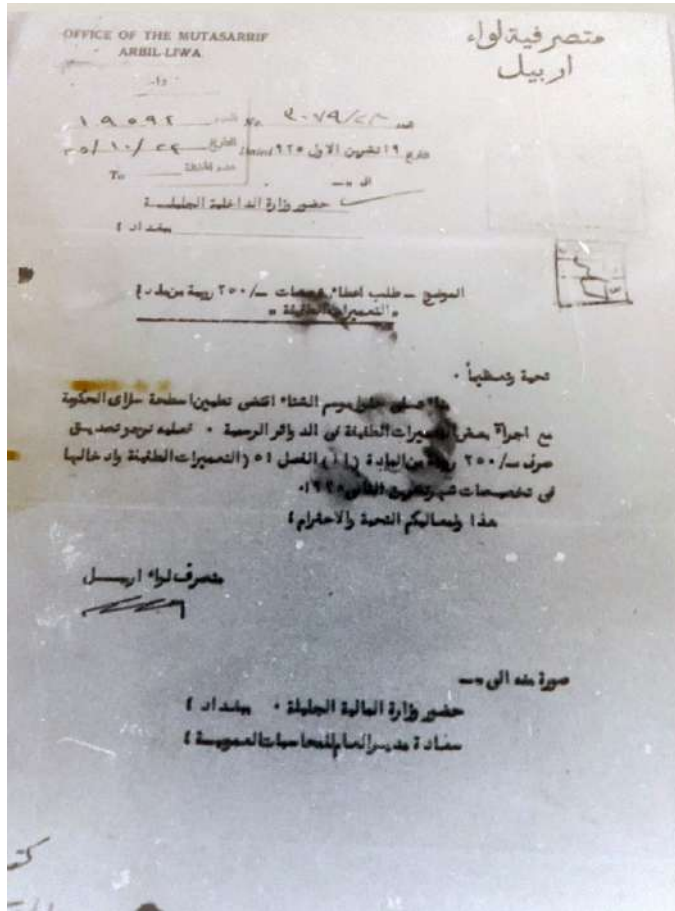 OFFICE OF THE MUTASARRIF
ARBIL-LIWA.
متصرفية لواء
اربيل
العدد ١٩٥٩٢
No. ٣٠٧٩/٢٣ عدد
التاريخ ٢٥/١٠/٢٤
Dated تاريخ ١٩ تشرين الاول ٩٢٥
To
الى
حضور وزارة الداخلية الجليلــة
بغداد
الموضوع ــ طلب اعطاء ٢٥٠/ــ روبية من
التعميرات الطفيفة
تحية وتعظيماً ٠
حلول موسم الشتاء اقتضى تطيين اسطحة سراى الحكومة
مع اجرآء بعض التعميرات الطفيفة فى الدوائر الرسمية ٠ نرجو تصديق
صرف ــ/٢٥٠ من المادة (١١) الفصل ٥١ (التعميرات الطفيفة وادخالها
فى تخصيصات شهر تشرين الثاني
هذا ولمعاليكم التحية والاحترام
متصرف لواء اربيــل
صورة منه الى
حضور وزارة المالية الجليلة ٠ بغداد
سعادة مدير العام للمحاسبات العموميــة